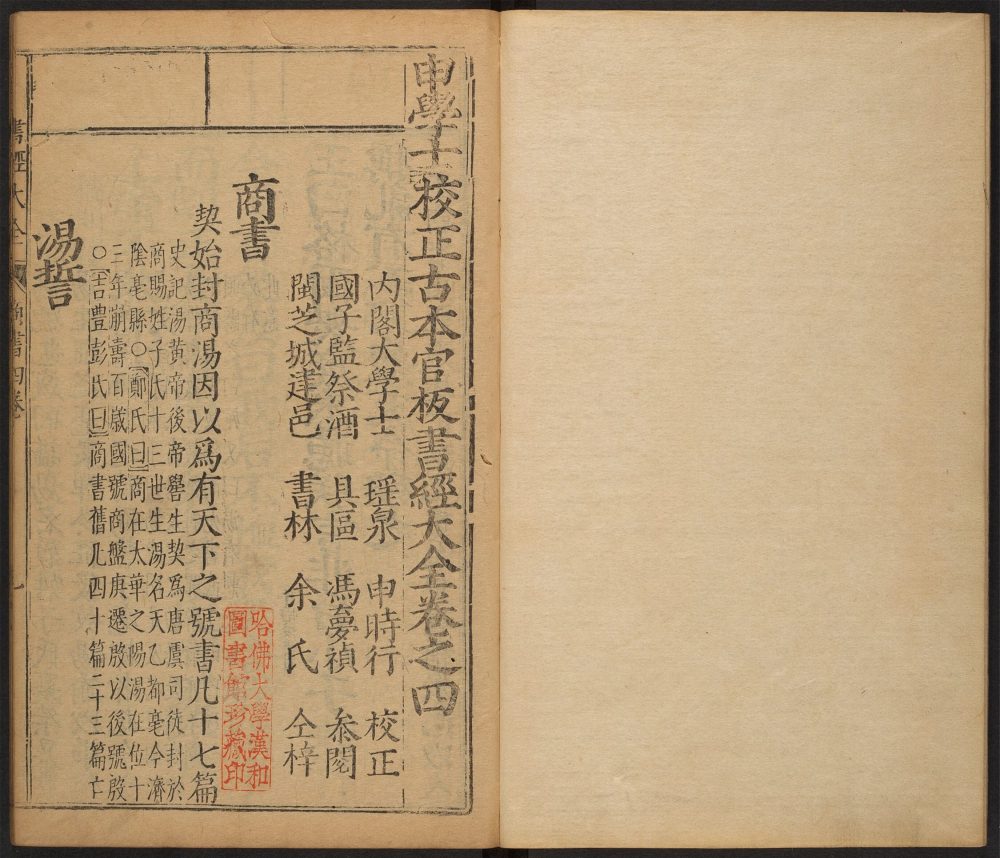 申學士校正古本官板書經大全卷之四
內閣大學士 瑶泉 申時行 校正
國子監祭酒 具區 馮夢禎 叅閱
閩芝城建邑 書林 余氏 仝梓
商書
契始封商湯因以爲有天下之號書凡十七篇
史記湯黄帝後帝嚳生契爲唐虞司徒封於
商賜姓子氏十三世生湯名天乙都亳今濟
陰亳縣○鄭氏曰商在太華之陽湯在位十
三年崩壽百歲國號商盤庚遷殷以後號殷
○吉豊彭氏曰商書舊凡四十篇二十三篇亡
湯誓
書經大全 商書四卷
哈佛大學漢和
圖書館珍藏印